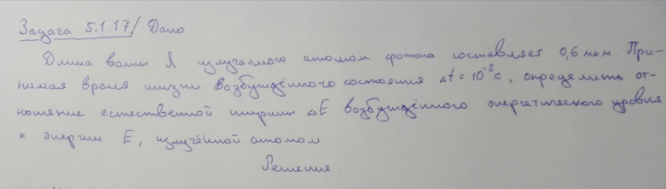 Задача 5.1.17/ Дано
Длина волны λ излучаемого атомом фотона составляет 0,6 мкм. При-
нимая время жизни возбуждённого состояния Δt = 10⁻⁸с, определить от-
ношение естественной ширины ΔE возбуждённого энергетического уровня
к энергии E, излучённой атомом
Решение.